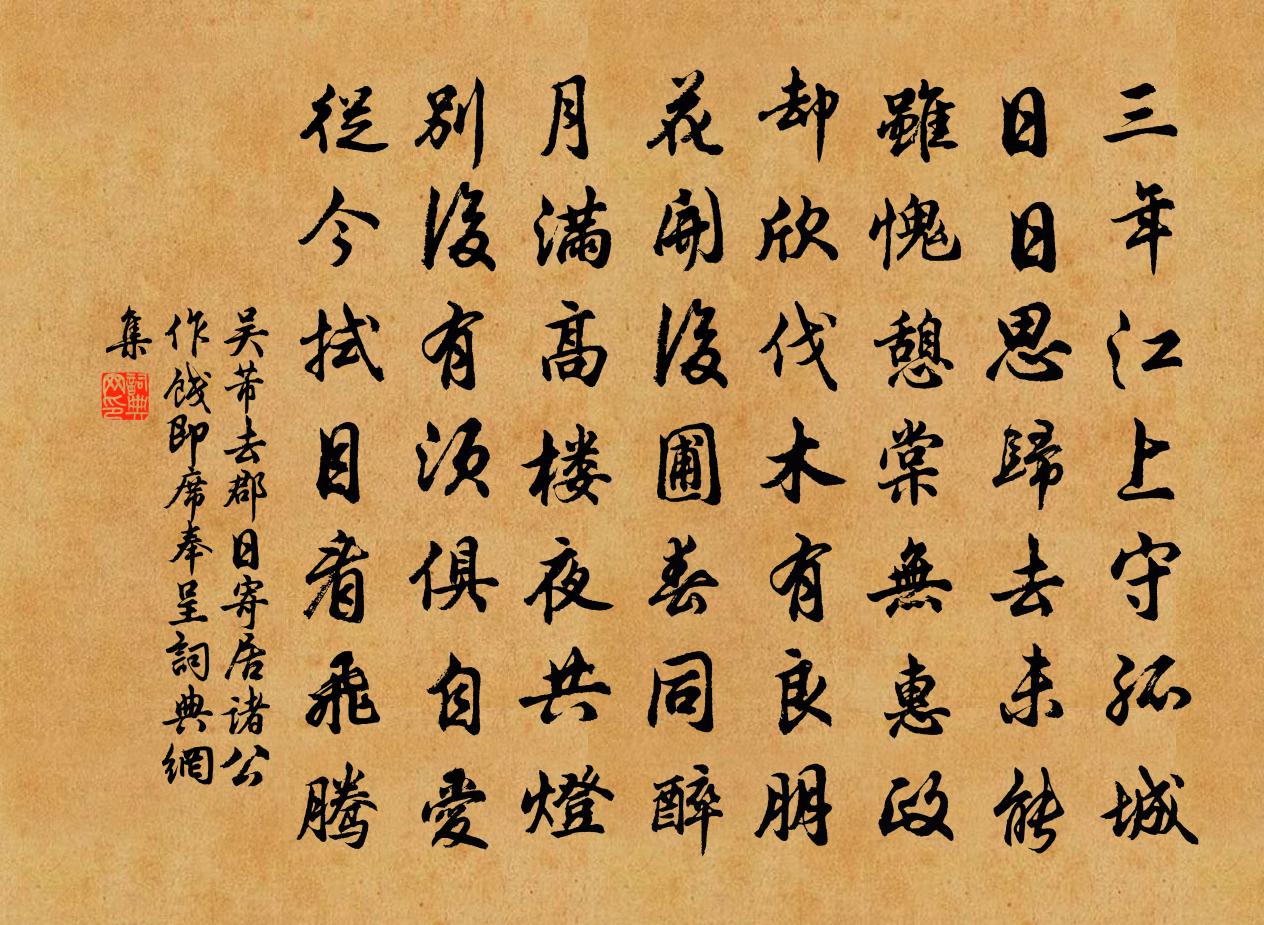 三年江上守孤城
日日思歸去未能
雖愧憩棠無惠政
却欣伐木有良朋
花開後圃春同醉
月滿高樓夜共燈
別後有須俱自愛
從今拭目看飛騰
吳芾去郡日寄居諸公
作餞即席奉呈詞典網
集
詞典
网印